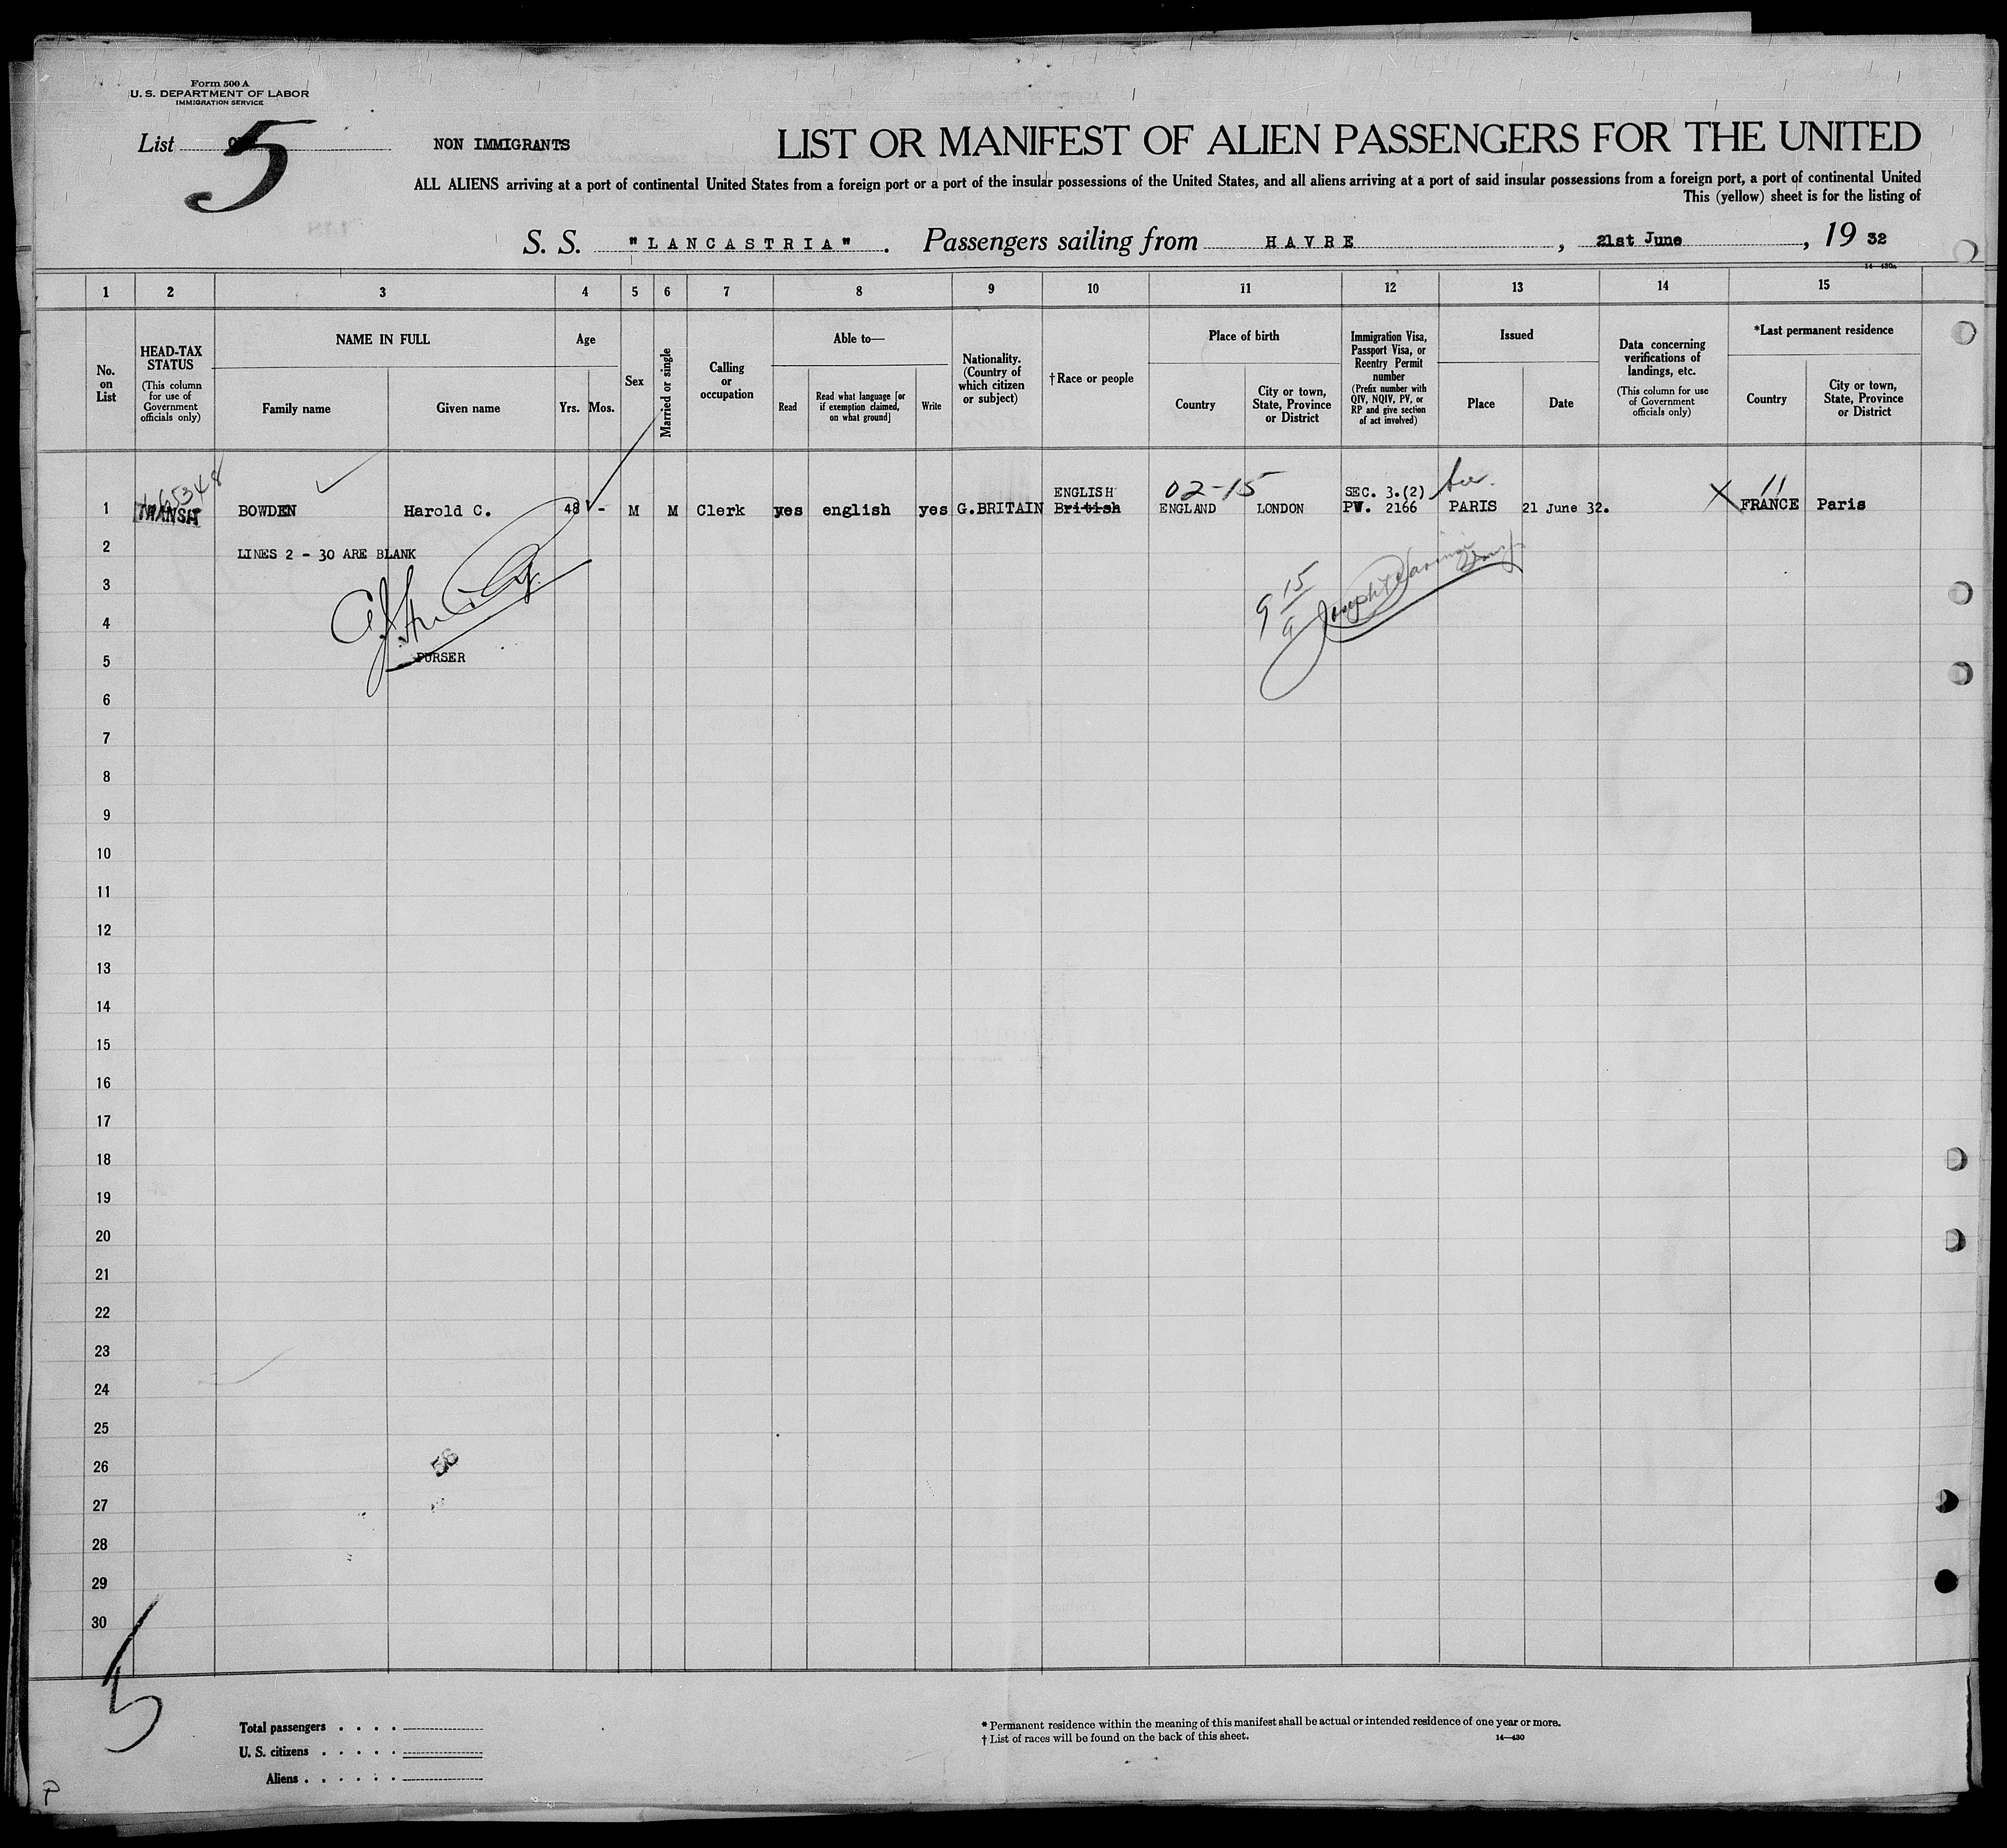 Form 500 A
U. S. DEPARTMENT OF LABOR
IMMIGRATION SERVICE
List 5
NON IMMIGRANTS
LIST OR MANIFEST OF ALIEN PASSENGERS FOR THE UNITED
ALL ALIENS arriving at a port of continental United States from a foreign port or a port of the insular possessions of the United States, and all aliens arriving at a port of said insular possessions from a foreign port, a port of continental United
This (yellow) sheet is for the listing of
S. S. "LANCASTRIA". Passengers sailing from HAVRE, 21st June, 19 32
14—430a
1 2 3 4 5 6 7 8 9 10 11 12 13 14 15
No. on List
HEAD-TAX STATUS
(This column for use of Government officials only)
NAME IN FULL
Family name
Given name
Age
Yrs.
Mos.
Sex
Married or single
Calling or occupation
Able to—
Read
Read what language [or if exemption claimed, on what ground]
Write
Nationality. (Country of which citizen or subject)
†Race or people
Place of birth
Country
City or town, State, Province or District
Immigration Visa, Passport Visa, or Reentry Permit number
(Prefix number with QIV, NQIV, PV, or RP and give section of act involved)
Issued
Place
Date
Data concerning verifications of landings, etc.
(This column for use of Government officials only)
*Last permanent residence
Country
City or town, State, Province or District
ENGLISH 02-15 SEC. 3.(2) 11
1 TRANSIT BOWDEN Harold C. 48 - M M Clerk yes english yes G.BRITAIN British ENGLAND LONDON PV. 2166 PARIS 21 June 32. X FRANCE Paris
2 LINES 2 - 30 ARE BLANK
3
4
5 PURSER
6
7
8
9
10
11
12
13
14
15
16
17
18
19
20
21
22
23
24
25
26
27
28
29
30
56
5
Total passengers . . . .
U. S. citizens . . . . .
Aliens . . . . . .
* Permanent residence within the meaning of this manifest shall be actual or intended residence of one year or more.
† List of races will be found on the back of this sheet.
14—430
P